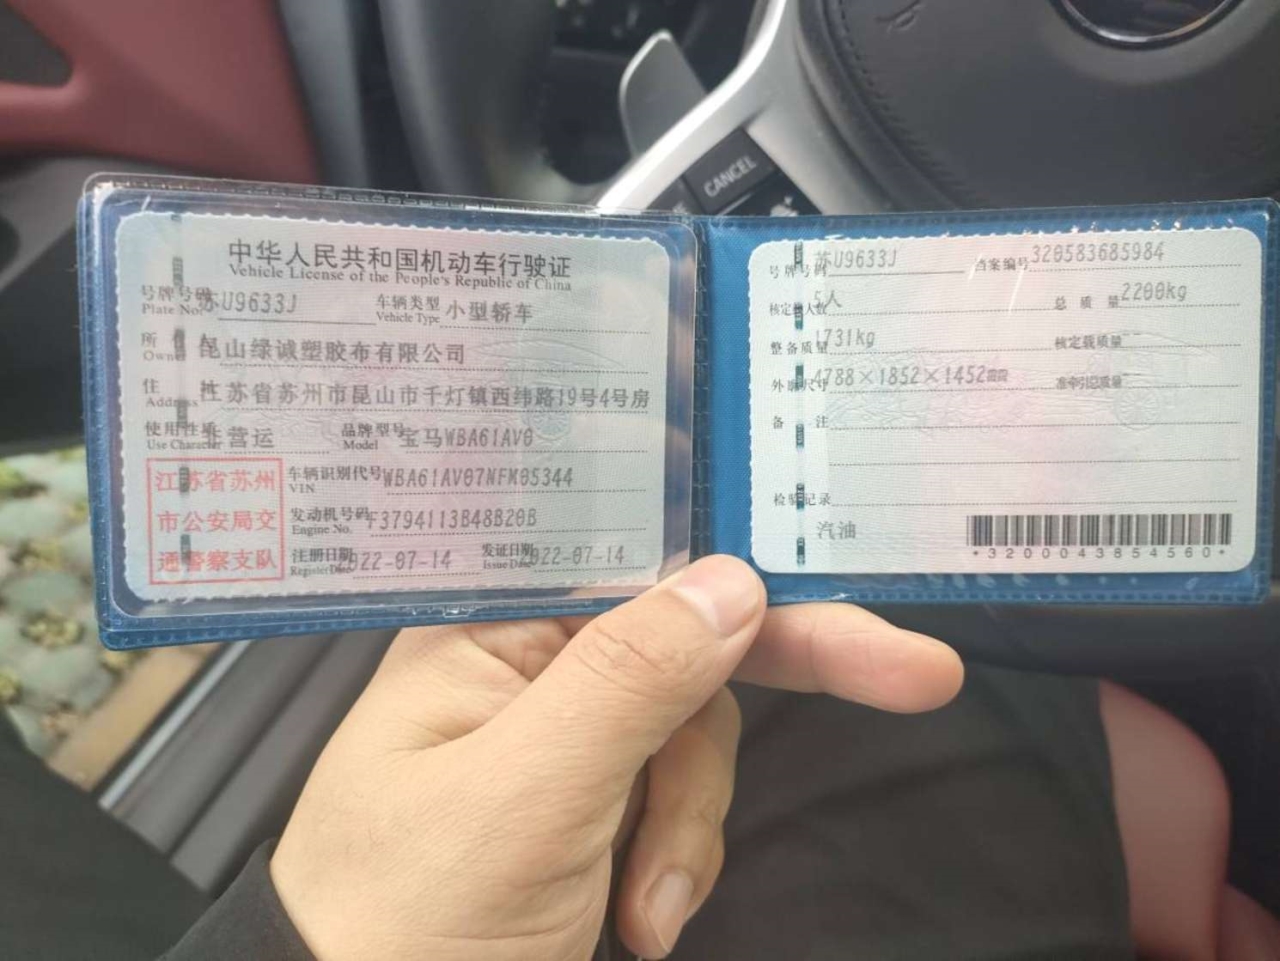 CANCEL
中华人民共和国机动车行驶证
Vehicle License of the People's Republic of China
号牌号码 苏U9633J 车辆类型 小型轿车
Plate No. Vehicle Type
所 有 人 昆山绿诚塑胶布有限公司
Owner
住 址 江苏省苏州市昆山市千灯镇西纬路19号4号房
Address
使用性质 非营运 品牌型号 宝马WBA61AV0
Use Character Model
江苏省苏州
市公安局交
通警察支队
车辆识别代号 WBA61AV07NFM05344
VIN
发动机号码 F3794113B48B20B
Engine No.
注册日期 2022-07-14 发证日期 2022-07-14
Register Date Issue Date
号牌号码 苏U9633J 档案编号 320583685984
核定载人数 5人 总 质 量 2200kg
整备质量 1731kg 核定载质量
外廓尺寸 4788×1852×1452mm 准牵引总质量
备 注
检验记录
汽油
*3200043854560*